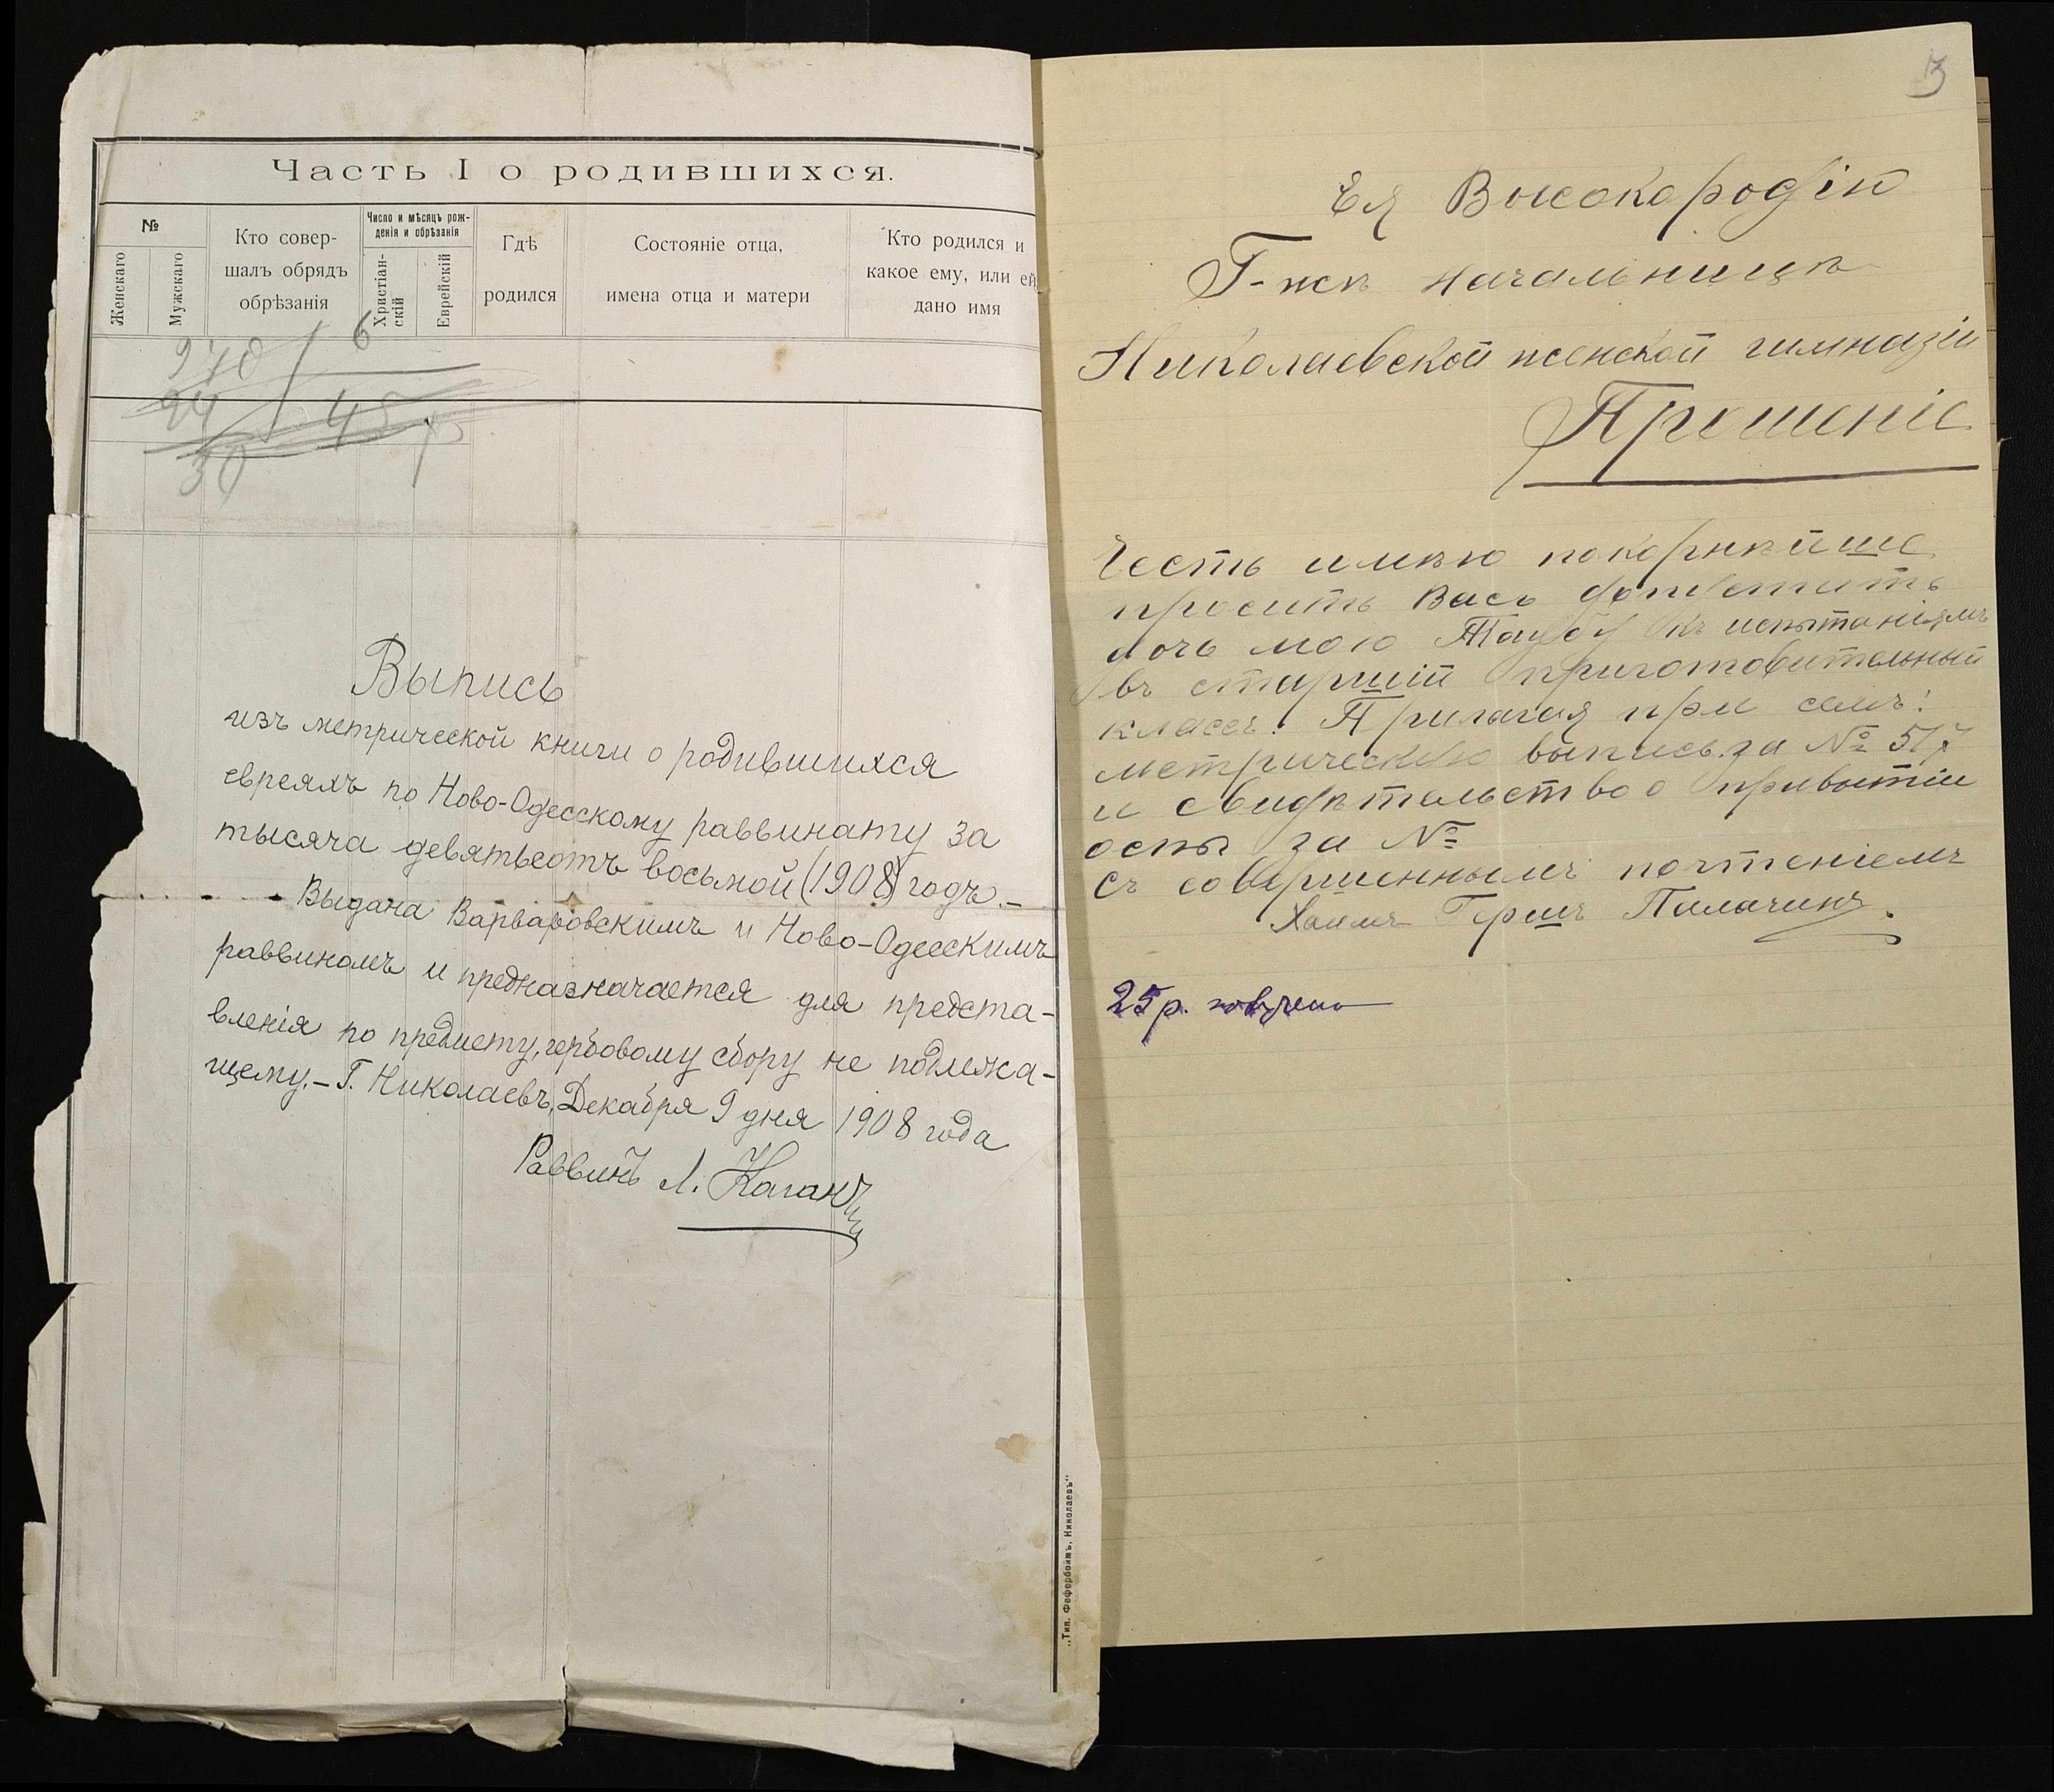 Часть I о родившихся.
№
Женскаго
Мужскаго
Кто совер-
шалъ обрядъ
обрѣзанія
Число и мѣсяцъ рож-
денія и обрѣзанія
Христіан-
скій
Еврейскій
Гдѣ
родился
Состояніе отца,
имена отца и матери
Кто родился и
какое ему, или ей
дано имя
270 6
24 45
30
Выпись
изъ метрической книги о родившихся
евреяхъ по Ново-Одесскому раввинату за
тысяча девятьсотъ восьмой (1908) годъ.–
Выдана Варваровскимъ и Ново-Одесскимъ
раввиномъ и предназначается для предста-
вленія по предмету, гербовому сбору не подлежа-
щему.– Г. Николаевъ, Декабря 9 дня 1908 года
Раввинъ Л. Каганъ
„Тип. Фефербоймъ, Николаевъ“
Ея Высокородію
Г-жѣ Начальницѣ
Николаевской женской гимназіи
Прошеніе
Честь имѣю покорнѣйше
просить Васъ допустить
дочь мою Таубу къ испытаніямъ
въ старшій приготовительный
классъ. Прилагая при семъ:
метрическую выпись за № 517
и свидѣтельство о привытіи
оспы за №
Съ совершеннымъ почтеніемъ
Хаимъ Гершъ Палачинъ.
25 р. получено